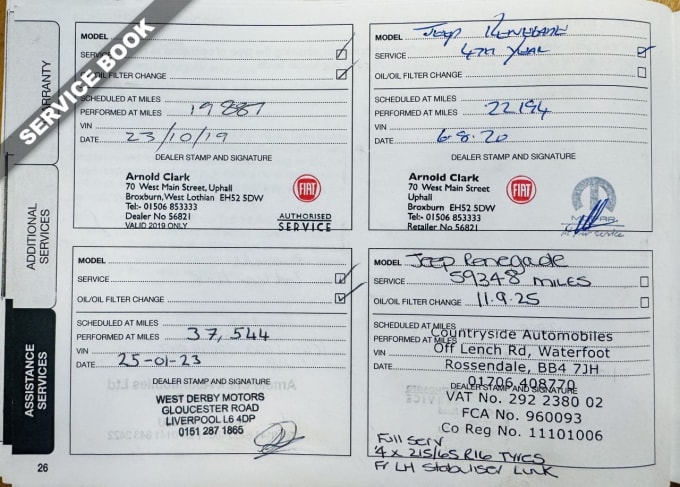 SERVICE BOOK
WARRANTY
ADDITIONAL SERVICES
ASSISTANCE SERVICES
MODEL
SERVICE
OIL/OIL FILTER CHANGE
SCHEDULED AT MILES
PERFORMED AT MILES 19887
VIN
DATE 23/10/19
DEALER STAMP AND SIGNATURE
Arnold Clark
70 West Main Street, Uphall
Broxburn, West Lothian EH52 5DW
Tel:- 01506 853333
Dealer No 56821
VALID 2019 ONLY
FIAT
AUTHORISED
SERVICE
MODEL Jeep Renegade
SERVICE 4th Year
OIL/OIL FILTER CHANGE
SCHEDULED AT MILES
PERFORMED AT MILES 22194
VIN
DATE 6.8.20
DEALER STAMP AND SIGNATURE
Arnold Clark
70 West Main Street
Uphall
Broxburn EH52 5DW
Tel:- 01506 853333
Retailer No 56821
FIAT
MODEL
SERVICE
OIL/OIL FILTER CHANGE
SCHEDULED AT MILES
PERFORMED AT MILES 37,544
VIN
DATE 25-01-23
DEALER STAMP AND SIGNATURE
WEST DERBY MOTORS
GLOUCESTER ROAD
LIVERPOOL L6 4DP
0151 287 1865
MODEL Jeep Renegade
SERVICE 59348 MILES
OIL/OIL FILTER CHANGE 11.9.25
SCHEDULED AT MILES
PERFORMED AT MILES
VIN
DATE
DEALER STAMP AND SIGNATURE
Countryside Automobiles
Off Lench Rd, Waterfoot
Rossendale, BB4 7JH
01706 408770
VAT No. 292 2380 02
FCA No. 960093
Co Reg No. 11101006
Full Serv
4 x 215/65 R16 TYRES
Fr LH Stabiliser Link
26